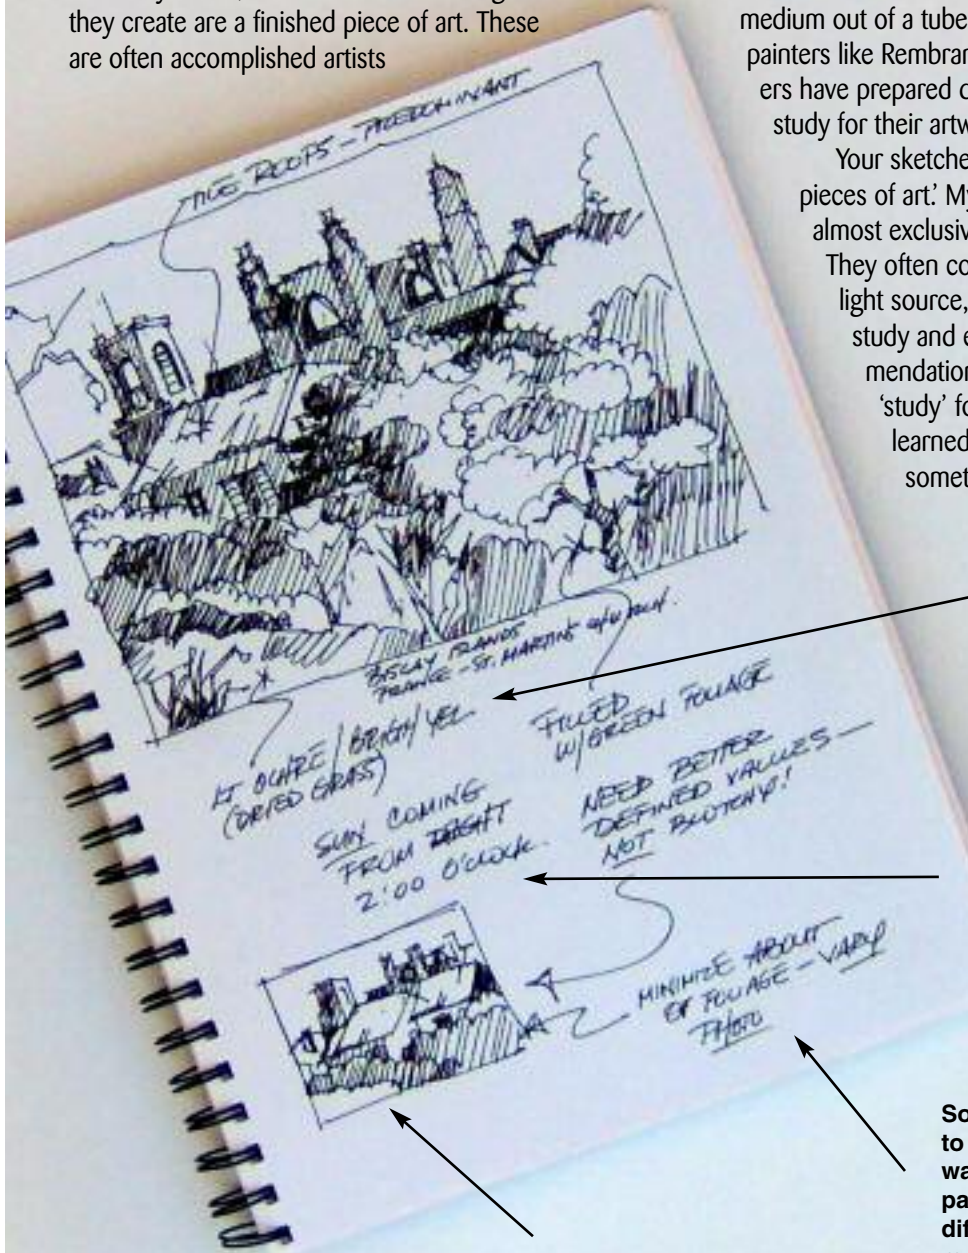 they create are a finished piece of art. These
are often accomplished artists
medium out of a tube
painters like Rembran
ers have prepared
study for their artw
Your sketche
pieces of art.' My
almost exclusiv
They often co
light source,
study and e
mendation
'study' fo
learned
somet
ROOFS - PREDOMINANT
FRANCE - ST. MARTINS
LT OCHRE / BEIGE / YEL
(DRIED GRASS)
FILLED
W/ GREEN FOLIAGE
SUN COMING
FROM RIGHT
2:00 O'CLOCK.
NEED BETTER
DEFINED VALUES—
NOT BLOTCHY!
MINIMIZE ABOUT
OF FOLIAGE - VARY
PHOTO
So
to
wa
pa
dif